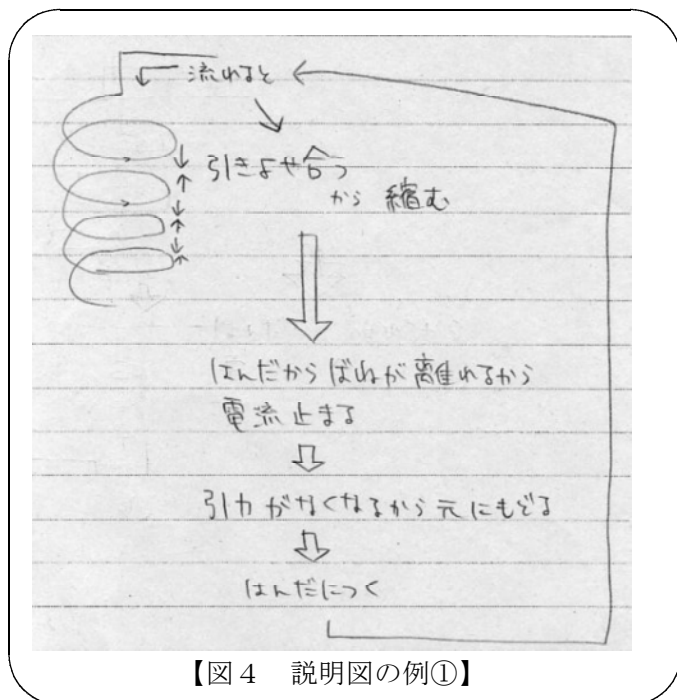 流れると
引きよせ合う
から 縮む
はんだからばねが離れるから
電流止まる
引力がなくなるから元にもどる
はんだにつく
【図4 説明図の例①】